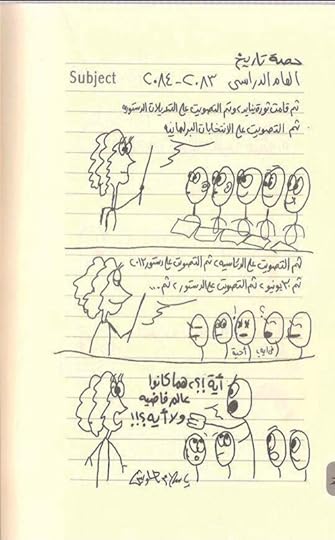 حصة تاريخ
العام الدراسى ٢٠٨٣ - ٢٠٨٤
Subject
ثم قامت ثورة يناير وتم التصويت على التعديلات الدستورية
ثم التصويت على الانتخابات البرلمانيه
ثم التصويت على الرئاسية، ثم التصويت على دستور ٢٠١٢
ثم ٣٠ يونيو، ثم التصويت على الدستور، ثم ...
أحية
أية!؟، هما كانوا
عالم فاضيه
ولا أية؟!!!